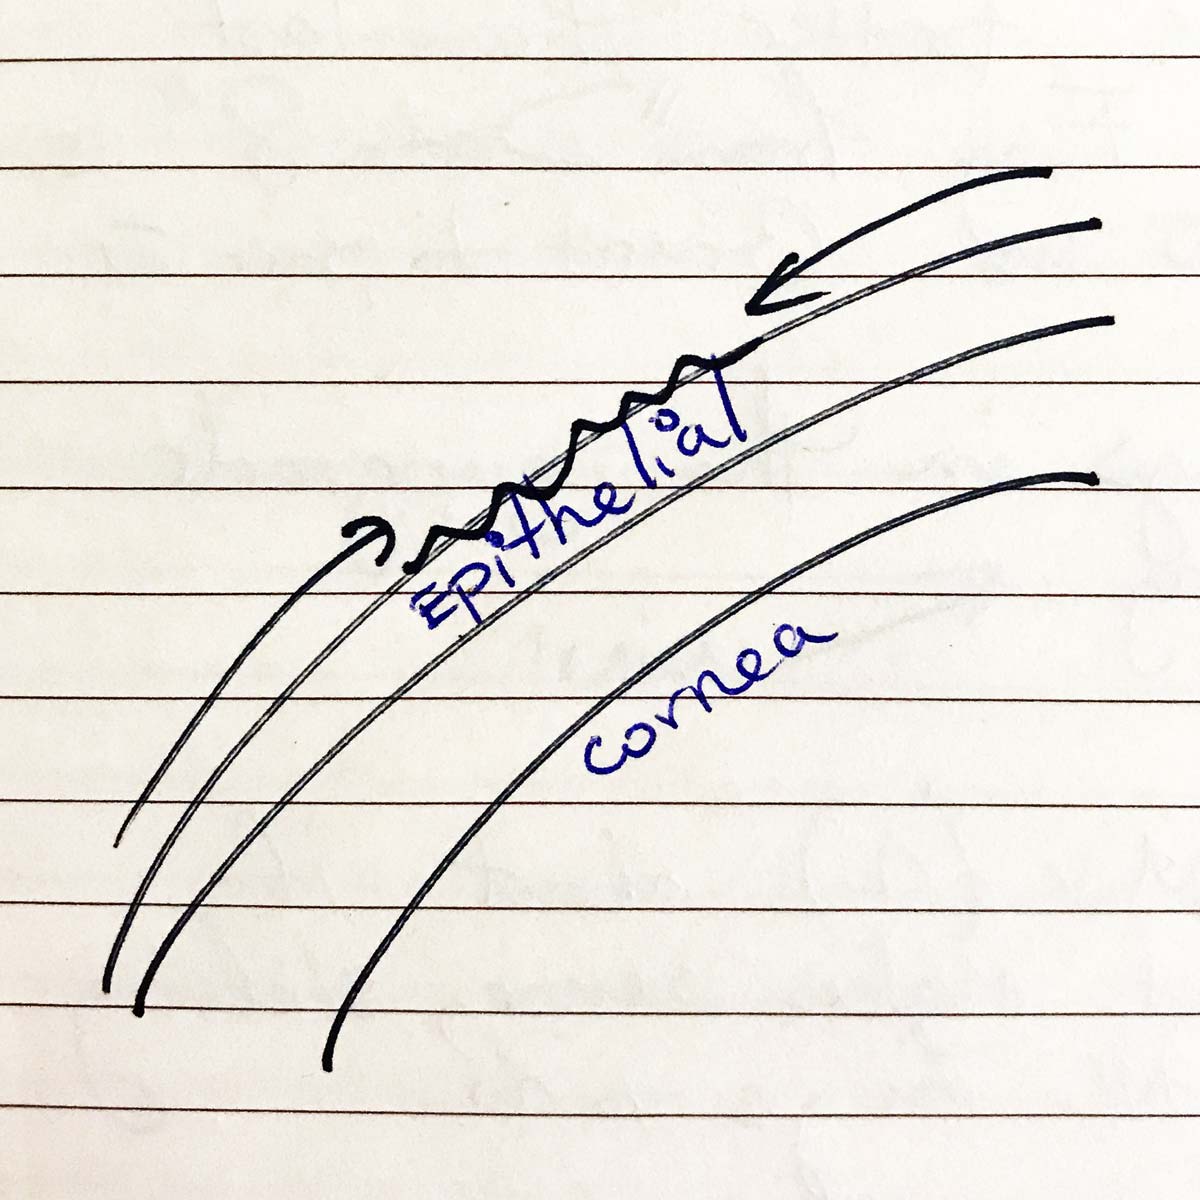 Epithelial
cornea